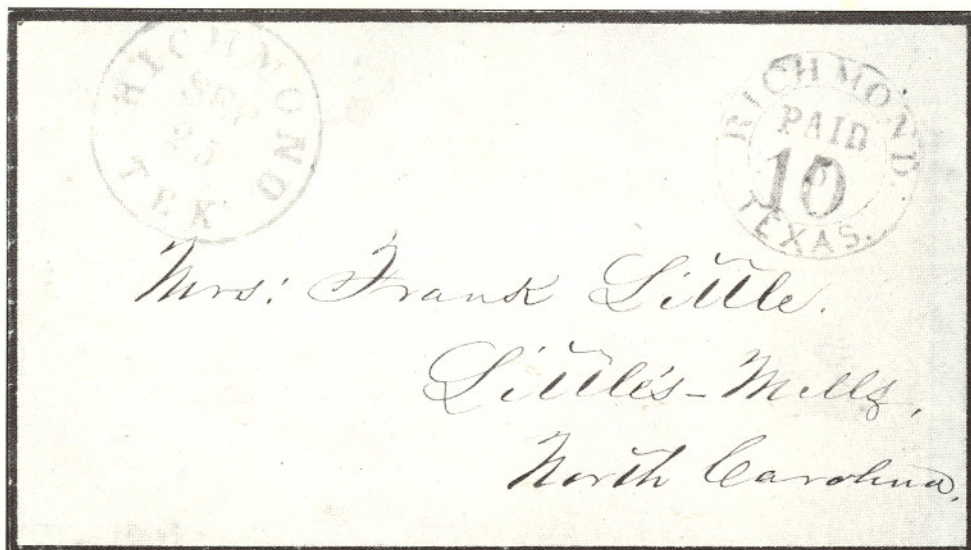 RICHMOND
SEP
25
TEX
RICHMOND
PAID
10
TEXAS.
Mrs: Frank Little.
Little's-Mills,
North Carolina.